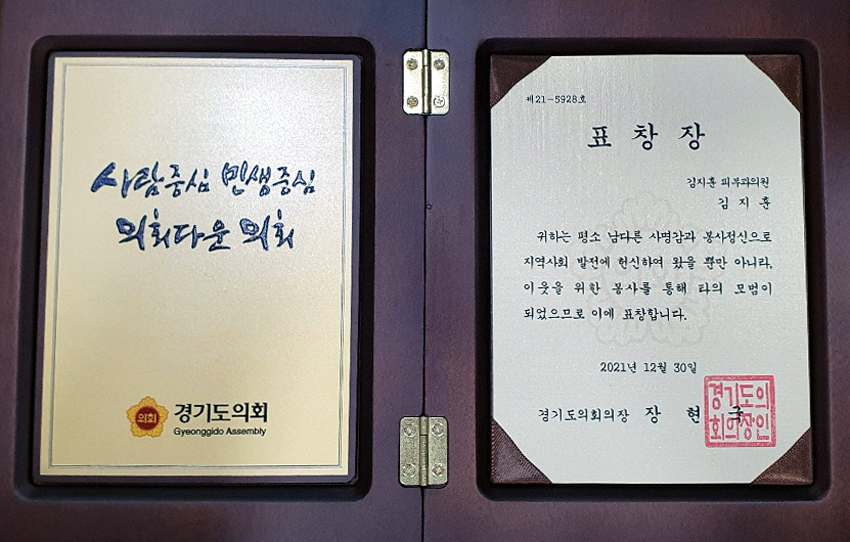 사람중심 민생중심
의회다운 의회
의회
경기도의회
Gyeonggido Assembly
제21-5928호
표 창 장
김지훈 피부과의원
김 지 훈
귀하는 평소 남다른 사명감과 봉사정신으로
지역사회 발전에 헌신하여 왔을 뿐만 아니라,
이웃을 위한 봉사를 통해 타의 모범이
되었으므로 이에 표창합니다.
2021년 12월 30일
경기도의회의장 장 현 국
경기도의
회의장인